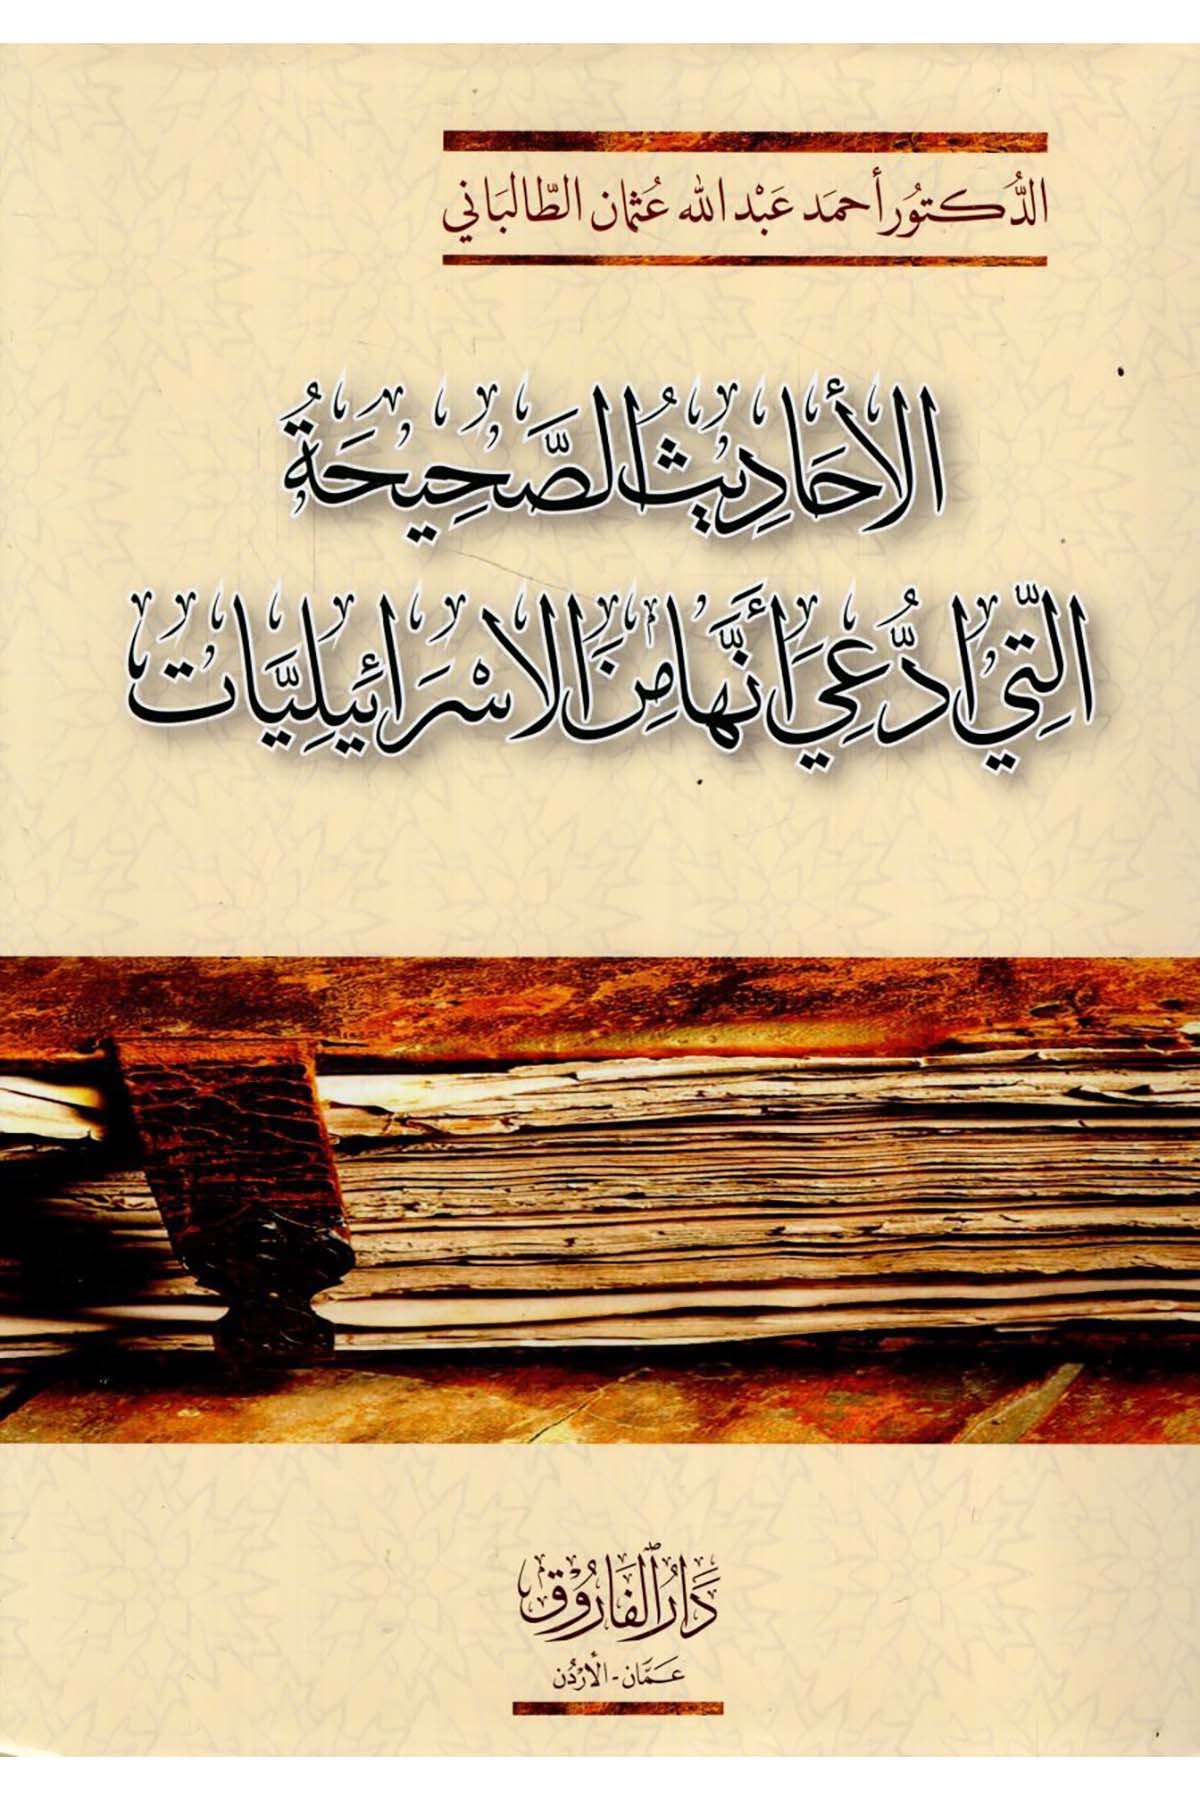 الدُّكتُور أحمَد عَبْد الله عُثمان الطَّالبَاني
الأَحَادِيثُ الصَّحِيحَةُ
التِّي ادُّعِيَ أَنَّهَا مِنَ الاسْرَائِيلِيَّات
دَارُ الفَارُوق
عَمَّان - الأُرْدُن